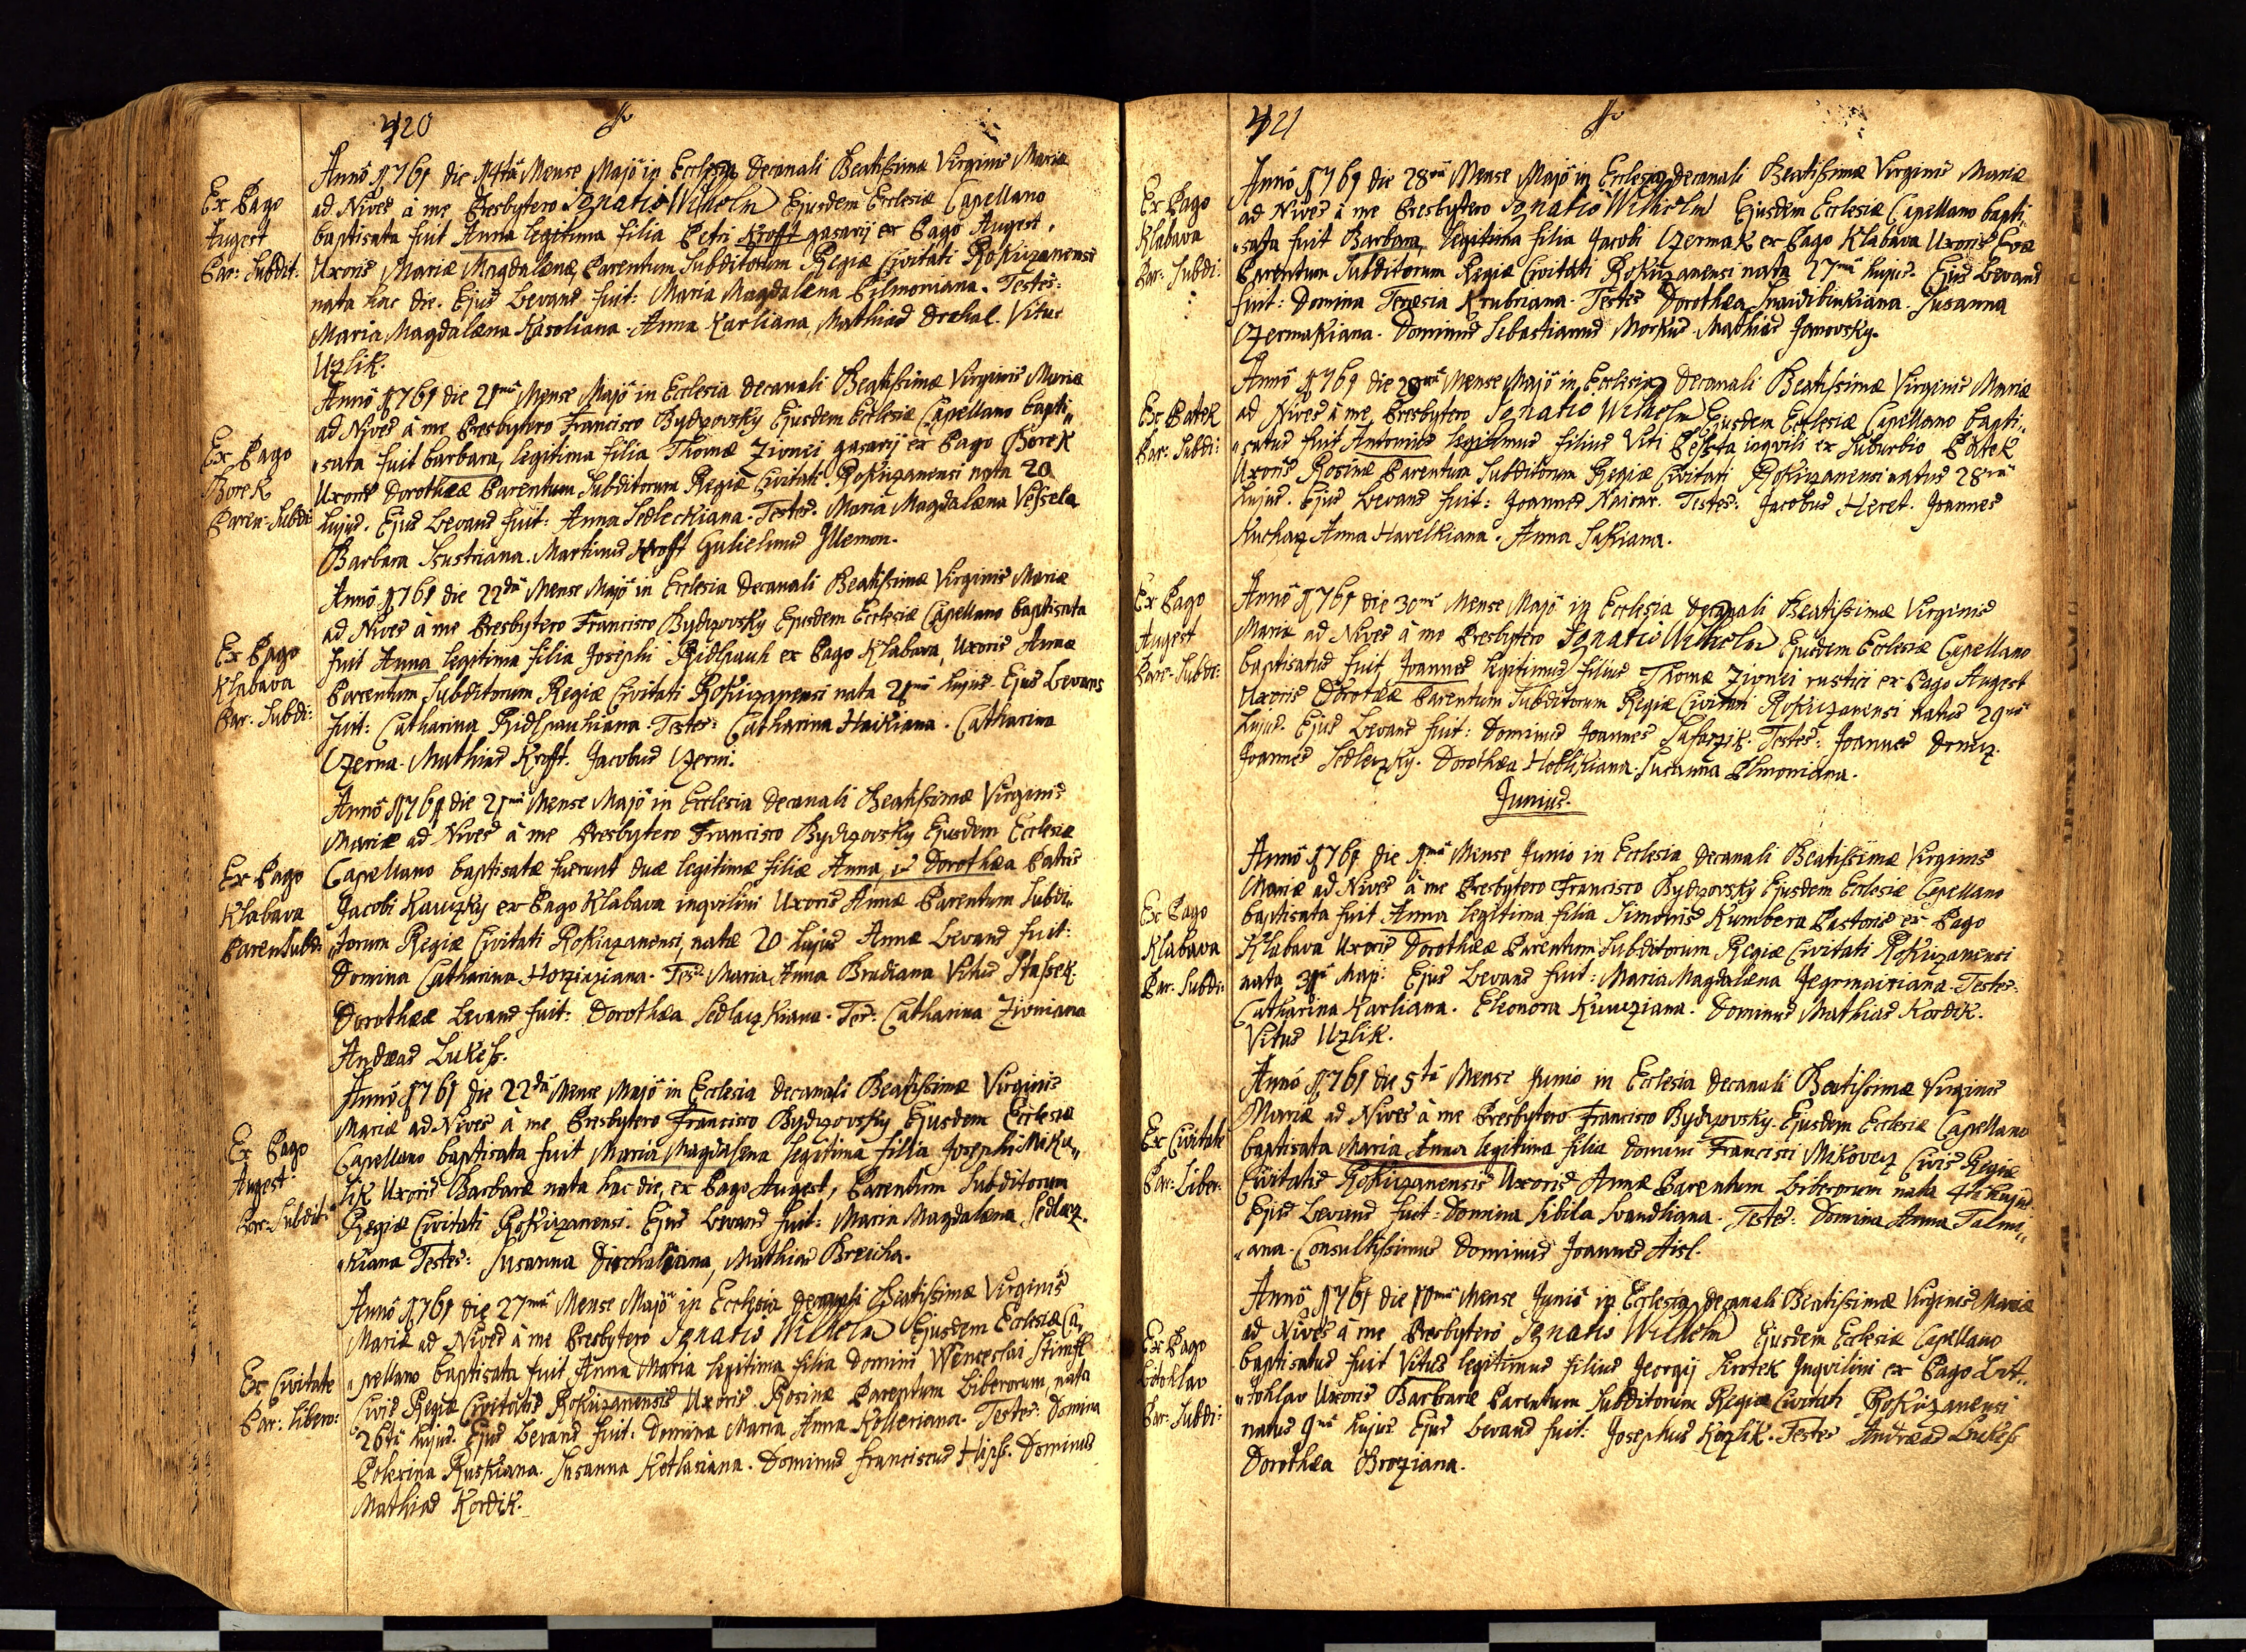 420
Ex Pago
Augest
Par: Subdit:
Anno 1761 die 14ta Mense Majo in Ecclesia Decanali Beatissimæ Virginis Mariæ
ad Nives à me Presbytero Ignatio Wilhelm Ejusdem Ecclesiæ Capellano
baptisata fuit Anna legitima filia Petri Krofft gasarij ex Pago Augest,
Uxoris Mariæ Magdalenæ Parentum Subditorum Regiæ Civitati Rokiczanensi
nata hac die. Ejus Levans fuit: Maria Magdalæna Pilmoniana. Testes:
Maria Magdalæna Kasoliana. Anna Karliana, Mathias Drchal. Vitus
Uzlik.
Ex Pago
Borek
Paren: Subdi:
Anno 1761 die 21ma Mense Majo in Ecclesia Decanali Beatissimæ Virginis Mariæ
ad Nives à me Presbytero Francisco Bydzovsky Ejusdem Ecclesiæ Capellano bapti„
„sata fuit barbara, legitima filia Thomæ Zivnei gasarij ex Pago Borek
Uxoris Dorothææ Parentum Subditorum Regiæ Civitati Rokiczanensi nata 20
hujus. Ejus Levans fuit: Anna Sedleckiana. Testes. Maria Magdalæna Vessela
Barbara Sustriana. Martinus Krofft Gulielmus Illemon.
Ex Pago
Klabava
Par: Subdi:
Anno 1761 die 22da Mense Majo in Ecclesia Decanali Beatissimæ Virginis Mariæ
ad Nives à me Presbytero Francisco Bydzovsky Ejusdem Ecclesiæ Capellano baptisata
fuit Anna legitima filia Josephi Ridlpauh ex Pago Klabava, Uxoris Annæ
Parentum Subditorum Regiæ Civitati Rokiczanensi nata 21ma hujus. Ejus Levans
fuit: Catharina Ridlpauhiana. Testes: Catharina Haikiana. Catharina
Czerna. Mathias Krofft. Jacobus Czerni.
Ex Pago
Klabava
Paren Subdi:
Anno 1761 die 21ma Mense Majo in Ecclesia Decanali Beatissimæ Virginis
Mariæ ad Nives à me Presbytero Francisco Bydzovsky Ejusdem Ecclesiæ
Capellano baptisatæ fuerunt duæ legitimæ filiæ Anna, et Dorothæa Patris
Jacobi Kauczky ex Pago Klabava inqvilini Uxoris Annæ Parentum Subdi„
„torum Regiæ Civitati Rokiczanensi, natæ 20 hujus Annæ Levans fuit:
Domina Catharina Horziziana. Tes: Maria Anna Brudiana Vitus Stassek.
Dorothææ Levans fuit: Dorothæa Sedlaczkiana. Tes: Catharina Zivniana
Andræas Lukess.
Ex Pago
Augest.
Par: Subdit:
Anno 1761 die 22da Mense Majo in Ecclesia Decanali Beatissimæ Virginis
Mariæ ad Nives à me Presbytero Francisco Bydzovsky Ejusdem Ecclesiæ
Capellano baptisata fuit Maria Magdalena legitima filia Josephi Miku„
lik Uxoris Barbaræ nata hac die, ex Pago Augest, Parentum Subditorum
Regiæ Civitati Rokiczanensi. Ejus Levans fuit: Maria Magdalæna Sedlacz„
„kiana Testes: Susanna Dirchaliana, Mathias Breicha.
Ex Civitate
Par: Libero:
Anno 1761 die 27ma Mense Majo in Ecclesia Decanali Beatissimæ Virginis
Mariæ ad Nives à me Presbytero Ignatio Wilhelm Ejusdem Ecclesiæ Ca„
„pellano baptisata fuit Anna Maria legitima filia Domini Wenceslai Stimpfl
Civis Regiæ Civitatis Rokiczanensis Uxoris Rosinæ Parentum Liberorum, nata
26ta hujus. Ejus Levans fuit: Domina Maria Anna Kolleriana. Testes: Domina
Polexina Ruskiana. Susanna Kotlasiana. Dominus Franciscus Hipss. Dominus
Mathias Kordik.
421
Ex Pago
Klabava
Par: Subdi:
Anno 1761 die 28va Mense Majo in Ecclesia Decanali Beatissimæ Virginis Mariæ
ad Nives à me Presbytero Ignatio Wilhelm Ejusdem Ecclesiæ Capellano bapti„
„sata fuit Barbara, legitima filia Jacobi Czermak ex Pago Klabava Uxoris Evæ
Parentum Subditorum Regiæ Civitati Rokiczanensi nata 27ma hujus. Ejus Levans
fuit: Domina Teresia Krubriana. Testes Dorothæa Snaidibinkiana. Susanna
Czermakiana. Dominus Sebastianus Morkus. Mathias Janovsky.
Ex Patek
Par: Subdi:
Anno 1761 die 29na Mense Majo in Ecclesia Decanali Beatissimæ Virginis Mariæ
ad Nives à me Presbytero Ignatio Wilhelm Ejusdem Ecclesiæ Capellano bapti„
„satus fuit Antonius legitimus filius Viti Pessta inqvilii ex Suburbio Patek
Uxoris Rosinæ Parentum Subditorum Regiæ Civitati Rokiczanensi natus 28va
hujus. Ejus Levans fuit: Joannes Naicar. Testes: Jacobus Heret. Joannes
Kucharz Anna Havelkiana. Anna Sakiana.
Ex Pago
Augest
Par: Subdi:
Anno 1761 die 30ma Mense Majo in Ecclesia Decanali Beatissimæ Virginis
Mariæ ad Nives à me Presbytero Ignatio Wilhelm Ejusdem Ecclesiæ Capellano
baptisatus fuit Joannes legitimus filius Thomæ Zivnei rustici ex Pago Augest
Uxoris Dorothææ Parentum Subditorum Regiæ Civitati Rokiczanensi natus 29na
hujus. Ejus Levans fuit: Dominus Joannes Safarzik. Testes: Joannes Donicz.
Joannes Sedleczky. Dorothæa Hoblikiana. Susanna Pilmoniana.
Junius.
Ex Pago
Klabava
Par: Subdi:
Anno 1761 die 1ma Mense Junio in Ecclesia Decanali Beatissimæ Virginis
Mariæ ad Nives à me Presbytero Francisco Bydzovsky Ejusdem Ecclesiæ Capellano
baptisata fuit Anna legitima filia Simonis Kumbera Pastoris ex Pago
Klabava Uxoris Dorothææ Parentum Subditorum Regiæ Civitati Rokiczanensi
nata 31ma Maji. Ejus Levans fuit: Maria Magdalæna Jegrmairiana. Testes:
Catharina Karliana. Eleonora Kuncziana. Dominus Mathias Kordik.
Vitus Uzlik.
Ex Civitate
Par: Liber:
Anno 1761 die 5ta Mense Junio in Ecclesia Decanali Beatissimæ Virginis
Mariæ ad Nives à me Presbytero Francisco Bydzovsky Ejusdem Ecclesiæ Capellano
baptisata Maria Anna legitima filia Domini Francisci Mikovecz Civis Regiæ
Civitatis Rokiczanensis Uxoris Annæ Parentum Liberorum nata 4ta hujus
Ejus Levans fuit: Domina Sibila Svandliana. Testes: Domina Anna Talmi„
„ana. Consultissimus Dominus Joannes Aisl.
Ex Pago
Litohlav
Par: Subdi:
Anno 1761 die 10ma Mense Junio in Ecclesia Decanali Beatissimæ Virginis Mariæ
ad Nives à me Presbytero Ignatio Wilhelm Ejusdem Ecclesiæ Capellano
baptisatus fuit Vitus legitimus filius Georgij Sirotek Inqvilini ex Pago Lit„
„tohlav Uxoris Barbaræ Parentum Subditorum Regiæ Civitati Rokiczanensi
natus 9na hujus Ejus Levans fuit: Josephus Kozlik. Testes Andræas Lukess
Dorothæa Broziana.